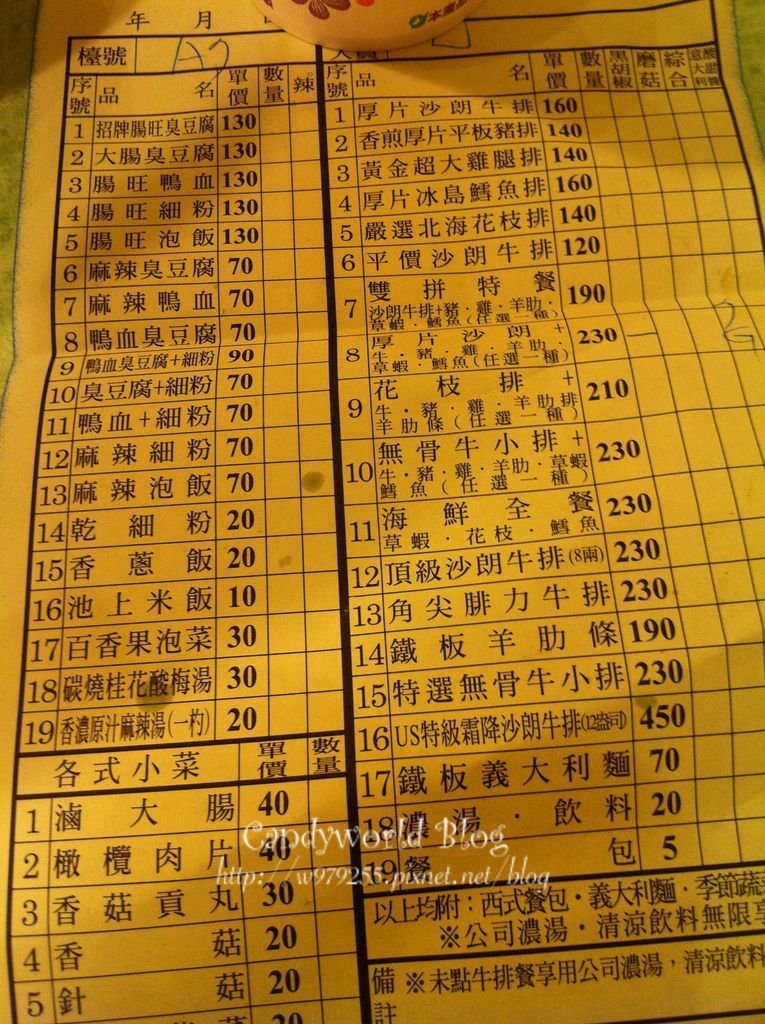 本產品
年 月
檯號 A5
序號 品名 單價 數量 辣
1 招牌腸旺臭豆腐 130
2 大腸臭豆腐 130
3 腸旺鴨血 130
4 腸旺細粉 130
5 腸旺泡飯 130
6 麻辣臭豆腐 70
7 麻辣鴨血 70
8 鴨血臭豆腐 70
9 鴨血臭豆腐+細粉 90
10 臭豆腐+細粉 70
11 鴨血+細粉 70
12 麻辣細粉 70
13 麻辣泡飯 70
14 乾細粉 20
15 香蔥飯 20
16 池上米飯 10
17 百香果泡菜 30
18 碳燒桂花酸梅湯 30
19 香濃原汁麻辣湯(一杓) 20
各式小菜 單價 數量
1 滷大腸 40
2 橄欖肉片 40
3 香菇貢丸 30
4 香菇 20
5 針菇 20
20
序號 品名 單價 數量 黑胡椒 磨菇 綜合 意大利 酸甜醬
1 厚片沙朗牛排 160
2 香煎厚片平板豬排 140
3 黃金超大雞腿排 140
4 厚片冰島鱈魚排 160
5 嚴選北海花枝排 140
6 平價沙朗牛排 120
7 雙拼特餐 190
沙朗牛排+豬·雞·羊肋·
草蝦·鱈魚(任選一種)
8 厚片沙朗+ 230
牛·豬·雞·羊肋·
草蝦·鱈魚(任選一種)
9 花枝排+ 210
牛·豬·雞·羊肋排
羊肋條(任選一種)
10 無骨牛小排+ 230
牛·豬·雞·羊肋·草蝦
鱈魚(任選一種)
11 海鮮全餐 230
草蝦·花枝·鱈魚
12 頂級沙朗牛排(8兩) 230
13 角尖腓力牛排 230
14 鐵板羊肋條 190
15 特選無骨牛小排 230
16 US特級霜降沙朗牛排(12盎司) 450
17 鐵板義大利麵 70
18 濃湯·飲料 20
19 餐包 5
以上均附:西式餐包·義大利麵·季節蔬
※公司濃湯·清涼飲料無限
備註 ※未點牛排餐享用公司濃湯,清涼飲料
Candyworld Blog
http://w979255.pixnet.net/blog